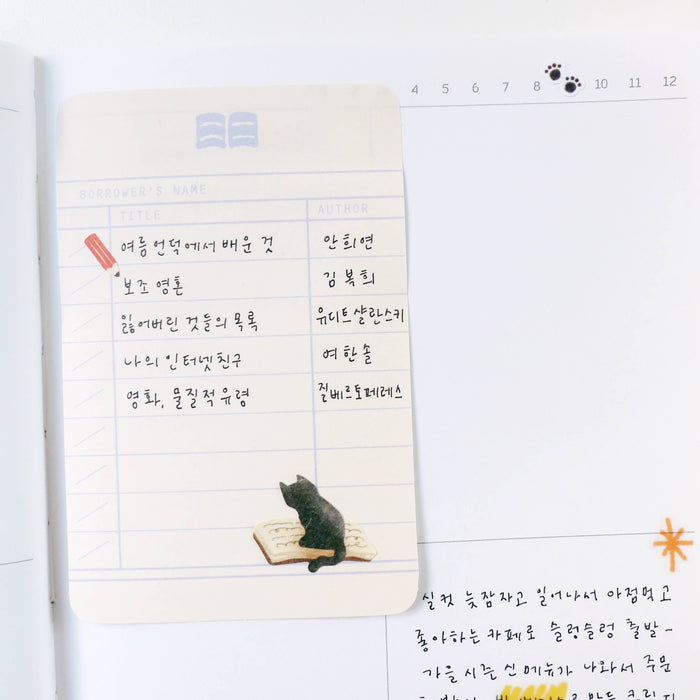 4 5 6 7 8 10 11 12
BORROWER'S NAME
TITLE AUTHOR
여름 언덕에서 배운 것 안희연
보조 영혼 김복희
잃어버린 것들의 목록 유디트 샬란스키
나의 인터넷 친구 여한솔
영화, 물질적 유령 질베르토 페레스
실컷 늦잠자고 일어나서 아점먹고
좋아하는 카페로 슬렁슬렁 출발-
가을 시즌 신메뉴가 나와서 주문